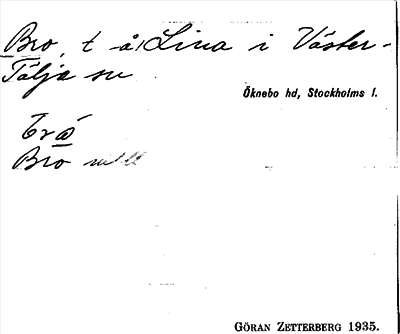 Bro, t å, Lina i Väster-
Tälja sn
Öknebo hd, Stockholms l.
Bro
GÖRAN ZETTERBERG 1935.